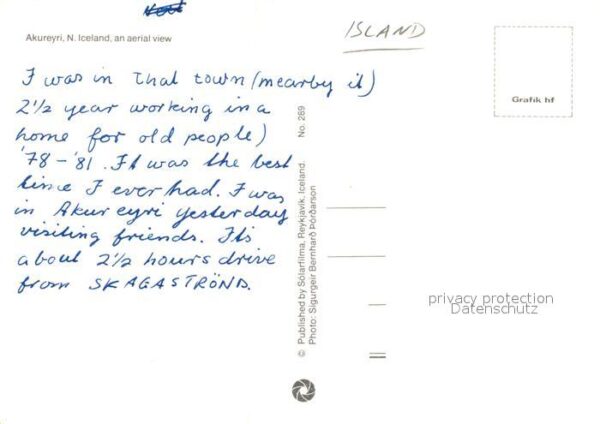 Akureyri, N. Iceland, an aerial view
ISLAND
Grafik hf
I was in that town (nearby it)
2½ year working in a
home for old people)
'78 - '81. It was the best
time I ever had. I was
in Akureyri yesterday
visiting friends. It's
about 2½ hours drive
from SKAGASTRÖND.
No. 269
© Published by Sólarfilma, Reykjavík, Iceland.
Photo: Sigurgeir Bernharð Þórðarson
privacy protection
Datenschutz